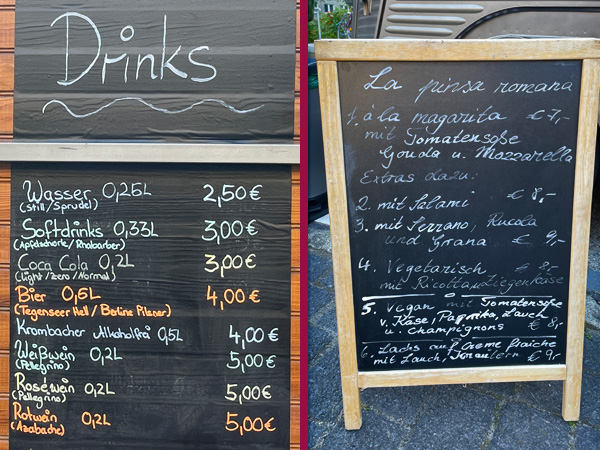 Drinks
Wasser 0,25L 2,50€
(Still/Sprudel)
Softdrinks 0,33L 3,00€
(Apfelschorle/Rhabarber)
Coca Cola 0,2L 3,00€
(light/Zero/Normal)
Bier 0,5L 4,00€
(Tegernseer Hell / Berliner Pilsner)
Krombacher Alkoholfrei 0,5L 4,00€
Weißwein 0,2L 5,00€
(Pellegrino)
Roséwein 0,2L 5,00€
(Pellegrino)
Rotwein 0,2L 5,00€
(Azabache)
La pinsa romana
1. á la magarita €7,-
mit Tomatensoße
Gouda u. Mozzarella
Extras dazu:
2. mit Salami €8,-
3. mit Serrano, Rucola
und Grana € 9,-
4. Vegetarisch € 8,-
mit Ricotta u. Ziegenkäse
5. Vegan mit Tomatensoße
v. Käse, Paprika, Lauch
u. Champignons €8,-
6. Lachs auf Creme fraiche
mit Lauch, €9,-